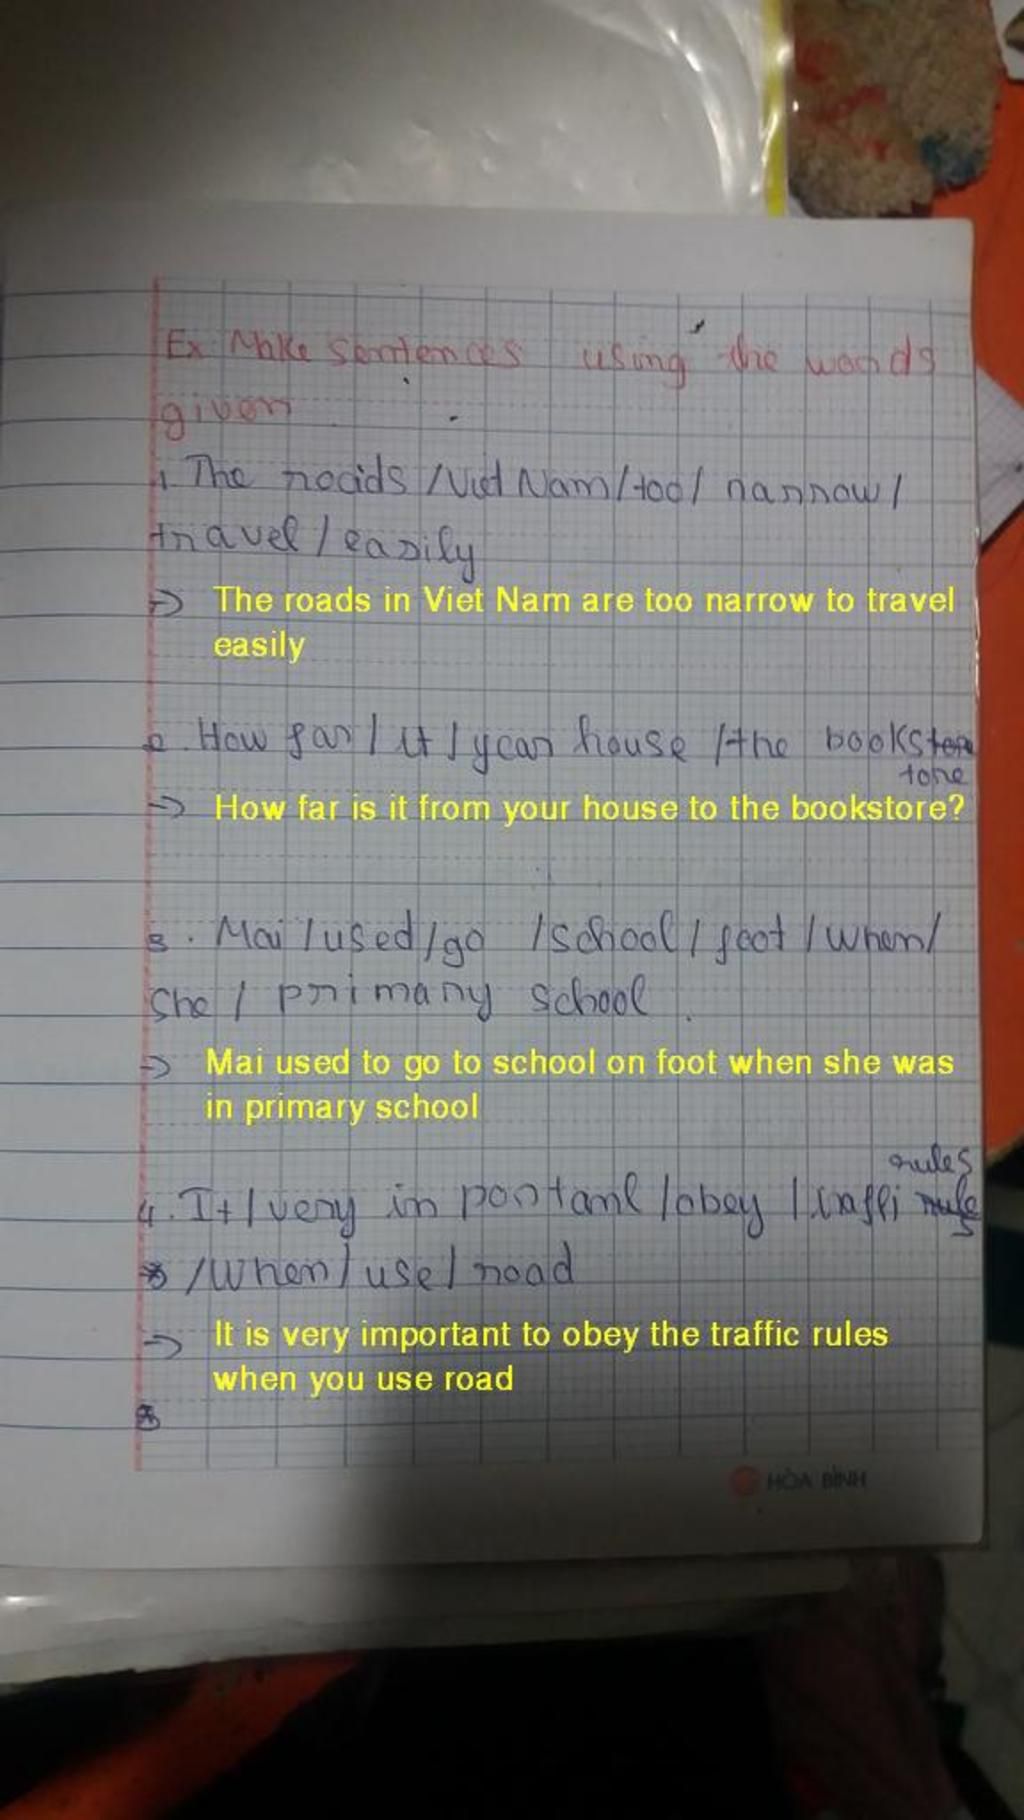 Ex Make sentences using the words
given
1. The roads /Viet Nam/too/ narrow/
travel/easily
→ The roads in Viet Nam are too narrow to travel
easily
2. How far/it/your house /the bookstore
tore
→ How far is it from your house to the bookstore?
3. Mai/used/go /school/foot/when/
She/ primary school.
→ Mai used to go to school on foot when she was
in primary school
rules
4. It/very in portant /obey /traffi
/When/use/road
→ It is very important to obey the traffic rules
when you use road
HÒA BÌNH